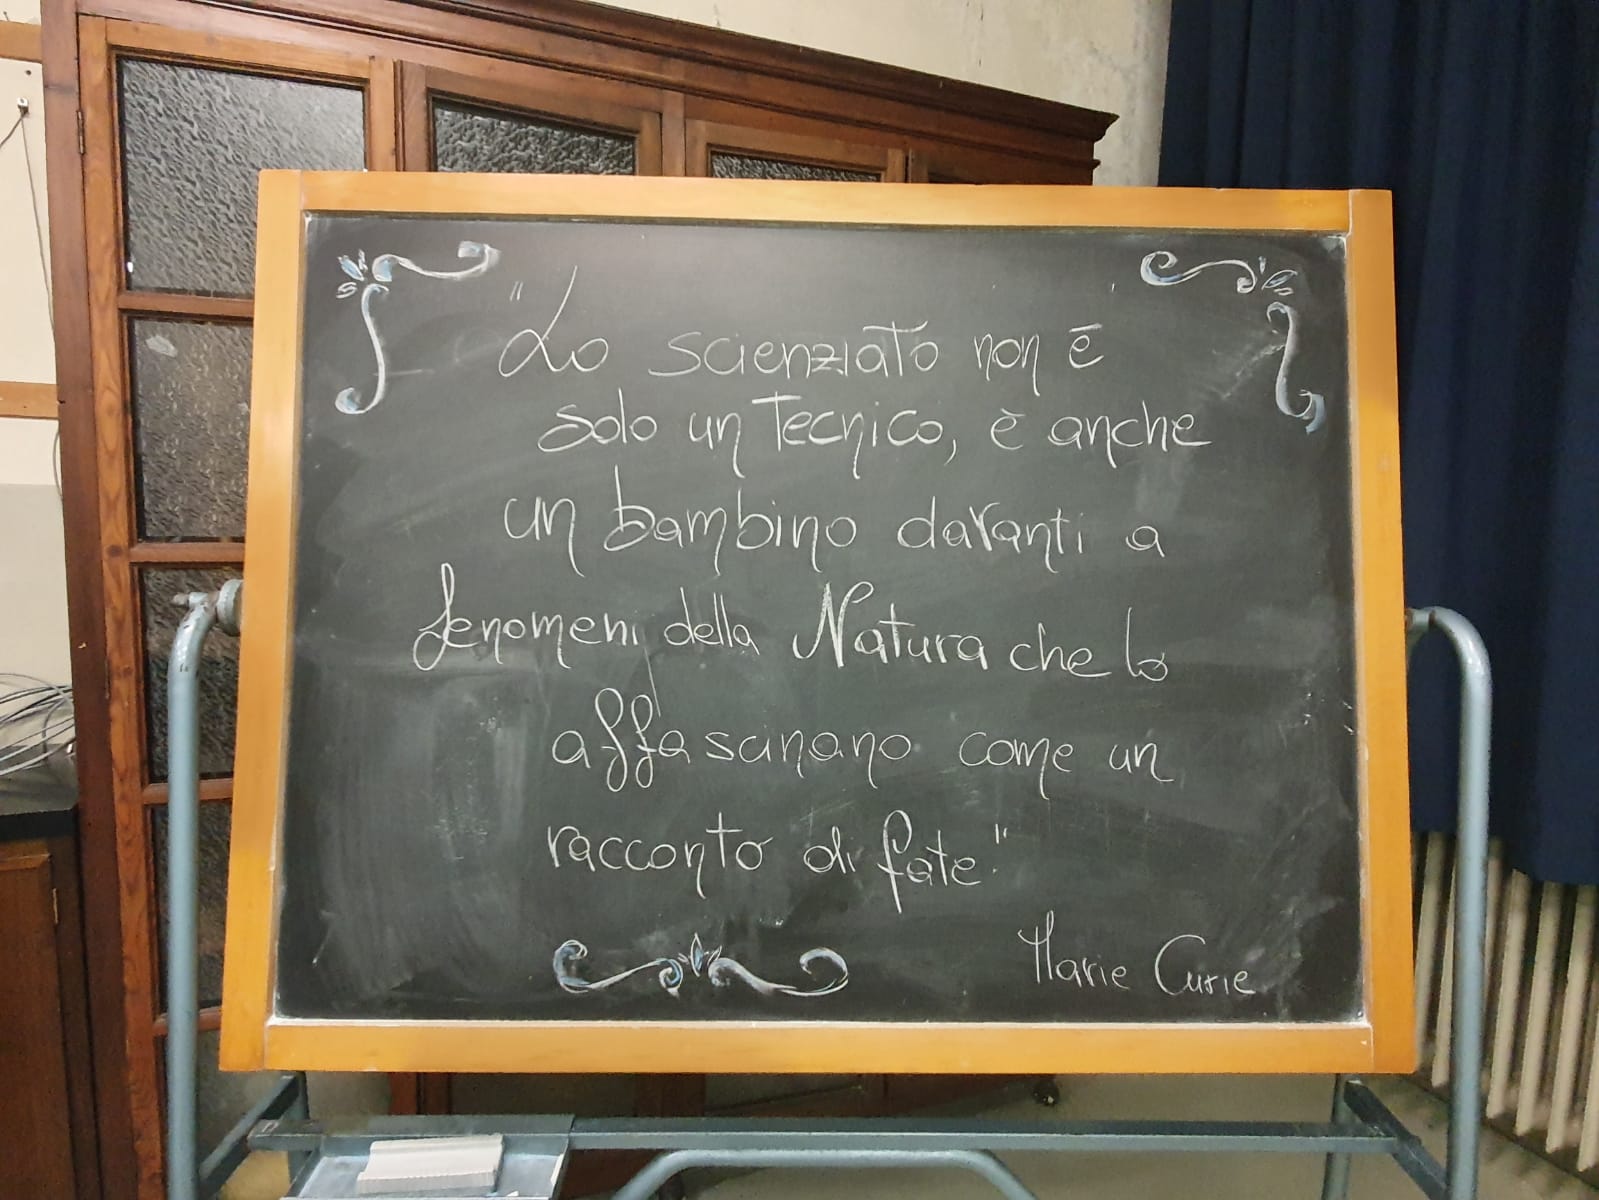 "Lo scienziato non è
solo un Tecnico, è anche
un bambino davanti a
fenomeni della Natura che lo
affascinano come un
racconto di fate".
Marie Curie